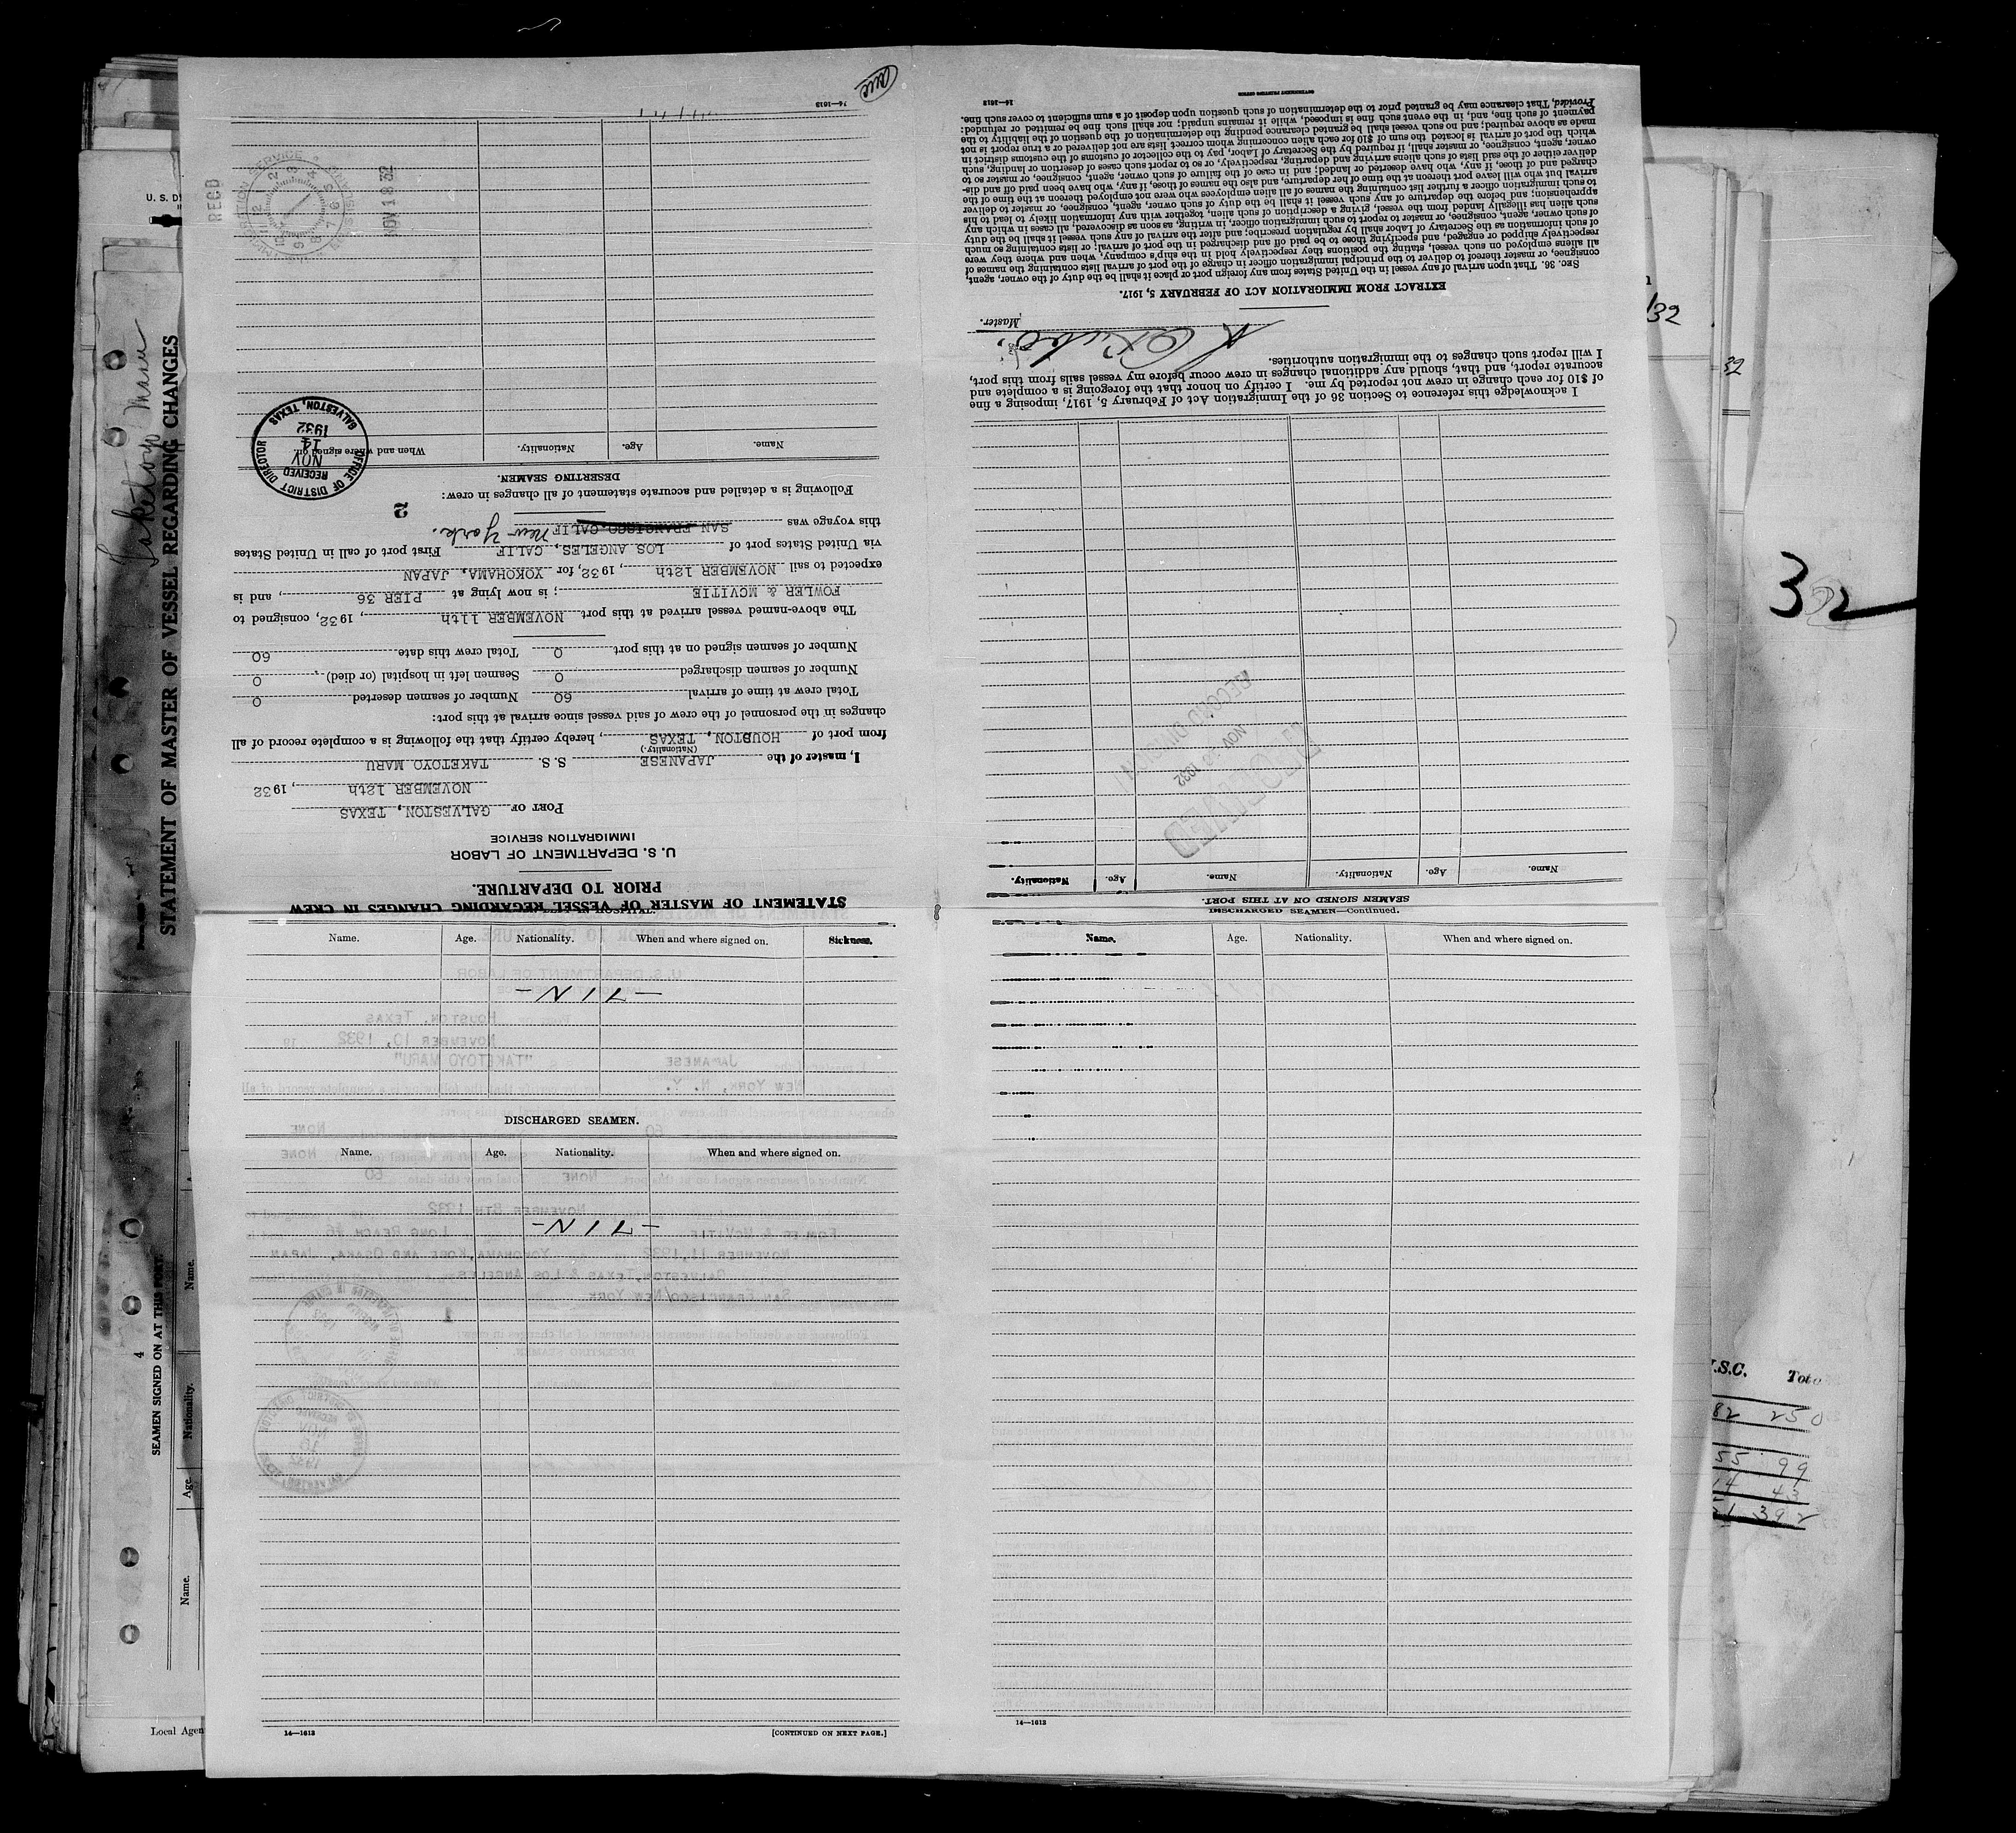 STATEMENT OF MASTER OF VESSEL REGARDING CHANGES IN CREW
PRIOR TO DEPARTURE.
U. S. DEPARTMENT OF LABOR
IMMIGRATION SERVICE
PORT OF GALVESTON, TEXAS
NOVEMBER 12th, 1932
I, master of the JAPANESE S. S. TAKETOYO MARU
(Nationality.)
from port of HOUSTON, TEXAS, hereby certify that the following is a complete record of all
changes in the personnel of the crew of said vessel since arrival at this port:
Total crew at time of arrival 60 Number of seamen deserted 0
Number of seamen discharged 0 Seamen left in hospital (or died) 0
Number of seamen signed on at this port 0 Total crew this date 60
The above-named vessel arrived at this port NOVEMBER 11th, 1932, consigned to
FOWLER & MCVITIE; is now lying at PIER 36, and is
expected to sail NOVEMBER 12th, 1932, for YOKOHAMA, JAPAN
via United States port of LOS ANGELES, CALIF First port of call in United States
this voyage was SAN FRANCISCO CALIF New York.
2
Following is a detailed and accurate statement of all changes in crew:
DESERTING SEAMEN.
Name. Age. Nationality. When and where signed on.
OFFICE OF DISTRICT DIRECTOR
RECEIVED
NOV
14
1932
GALVESTON, TEXAS
REC'D
NOV 18 32
IMMIGRATION SERVICE
14—1613
SEAMEN SIGNED ON AT THIS PORT.
Name. Age. Nationality. Name. Age. Nationality.
RECORD DIVISION
NOV 18 1932
I acknowledge this reference to Section 36 of the Immigration Act of February 5, 1917, imposing a fine
of $10 for each change in crew not reported by me. I certify on honor that the foregoing is a complete and
accurate report, and that, should any additional changes in crew occur before my vessel sails from this port,
I will report such changes to the immigration authorities.
Master.
EXTRACT FROM IMMIGRATION ACT OF FEBRUARY 5, 1917.
SEC. 36. That upon arrival of any vessel in the United States from any foreign port or place it shall be the duty of the owner, agent,
consignee, or master thereof to deliver to the principal immigration officer in charge of the port of arrival lists containing the names of
all aliens employed on such vessel, stating the positions they respectively hold in the ship's company, when and where they were
respectively shipped or engaged, and specifying those to be paid off and discharged in the port of arrival; or lists containing so much
of such information as the Secretary of Labor shall by regulation prescribe; and after the arrival of any such vessel it shall be the duty
of such owner, agent, consignee, or master to report to such immigration officer, in writing, as soon as discovered, all cases in which any
such alien has illegally landed from the vessel, giving a description of such alien, together with any information likely to lead to his
apprehension; and before the departure of any such vessel it shall be the duty of such owner, agent, consignee, or master to deliver
to such immigration officer a further list containing the names of all alien employees who were not employed thereon at the time of the
arrival but who will leave port thereon at the time of her departure, and also the names of those, if any, who have been paid off and dis-
charged and of those, if any, who have deserted or landed; and in case of the failure of such owner, agent, consignee, or master so to
deliver either of the said lists of such aliens arriving and departing, respectively, or so to report such cases of desertion or landing, such
owner, agent, consignee, or master shall, if required by the Secretary of Labor, pay to the collector of customs of the customs district in
which the port of arrival is located the sum of $10 for each alien concerning whom correct lists are not delivered or a true report is not
made as above required; and no such vessel shall be granted clearance pending the determination of the question of the liability to the
payment of such fine, and, in the event such fine is imposed, while it remains unpaid; nor shall such fine be remitted or refunded:
Provided, That clearance may be granted prior to the determination of such question upon deposit of a sum sufficient to cover such fine.
14—1613
GOVERNMENT PRINTING OFFICE
Name. Age. Nationality. When and where signed on. Sickness.
- NIL -
DISCHARGED SEAMEN.
Name. Age. Nationality. When and where signed on.
- NIL -
14—1613 [CONTINUED ON NEXT PAGE.]
DISCHARGED SEAMEN—Continued.
Name. Age. Nationality. When and where signed on.
14—1613
HOUSTON, TEXAS
NOVEMBER 10, 1932
JAPANESE "TAKETOYO MARU"
NEW YORK, N. Y.
60 NONE
NONE
NONE 60
NOVEMBER 8TH 1932
FOWLER & MCVITIE LONG REACH #6
NOVEMBER 11, 1932 YOKOHAMA, KOBE AND OSAKA, JAPAN
GALVESTON, TEXAS & LOS ANGELES
SAN FRANCISCO/NEW YORK
1
Taketoyo Maru
STATEMENT OF MASTER OF VESSEL REGARDING CHANGES
4
SEAMEN SIGNED ON AT THIS PORT.
Name. Age. Nationality. Name.
Local Agen
U. S. D
32
32
.S.C. Tota
82 250
55 99
14 43
392